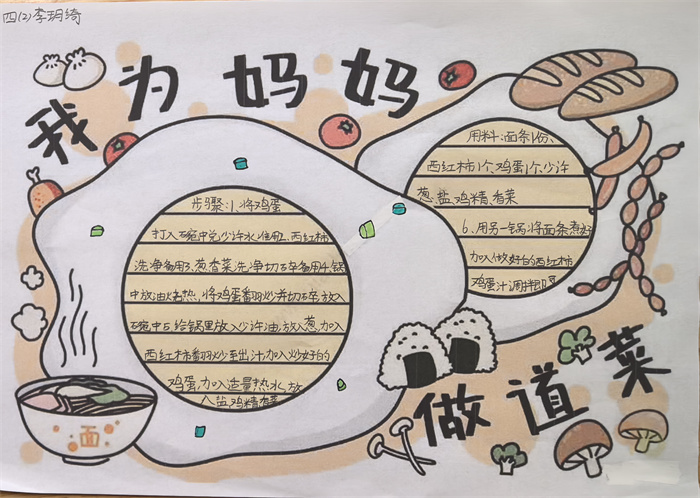 四(2)李玥绮
我为妈妈
做道菜
用料:面条1份、
西红柿1个,鸡蛋1个,少许
葱,盐,鸡精、香菜
步骤:1、将鸡蛋
打入碗中兑少许水,备用2、西红柿
洗净备用3、葱香菜洗净切碎备用4、锅
中放油烧热,将鸡蛋翻炒并切碎放入
碗中5、给锅里放入少许油,放入葱,加入
西红柿翻炒至出汁加入炒好的
鸡蛋,加入适量热水,放
入盐鸡精香菜
6、用另一锅,将面条煮好
加入做好的西红柿
鸡蛋汁调料即可
面